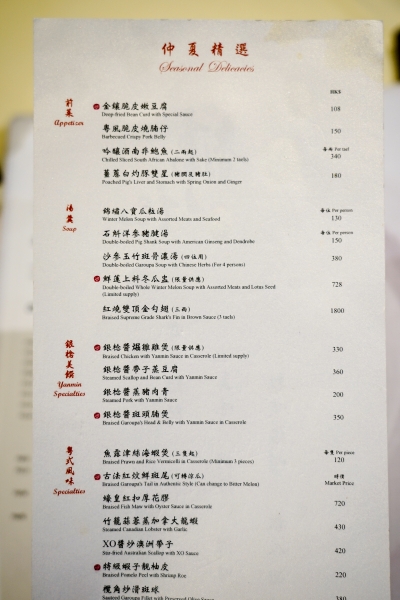 仲夏精選
Seasonal Delicacies
HK$
前菜
Appetizer
金釀脆皮嫩豆腐 108
Deep-fried Bean Curd with Special Sauce
粵風脆皮燒腩仔 150
Barbecued Crispy Pork Belly
吟釀酒南非鮑魚(二両起) 每両 Per tael
Chilled Sliced South African Abalone with Sake (Minimum 2 taels) 340
薑蔥白灼豚雙星(豬膶及豬肚) 180
Poached Pig's Liver and Stomach with Spring Onion and Ginger
湯羹
Soup
錦繡八寶瓜粒湯 每位 Per person
Winter Melon Soup with Assorted Meats and Seafood 130
石斛洋參豬腱湯 每位 Per person
Double-boiled Pig Shank Soup with American Ginseng and Dendrobe 150
沙參玉竹斑骨濃湯(四位用) 380
Double-boiled Garoupa Soup with Chinese Herbs (For 4 persons)
鮮蓮上料冬瓜盅(限量供應) 728
Double-boiled Whole Winter Melon Soup with Assorted Meats and Lotus Seed
(Limited supply)
紅燒雙頂金勾翅(三両) 1800
Braised Supreme Grade Shark's Fin in Brown Sauce (3 taels)
銀稔美饌
Yanmin
Specialties
銀稔醬爆雞煲(限量供應) 330
Braised Chicken with Yanmin Sauce in Casserole (Limited supply)
銀稔醬帶子蒸豆腐 360
Steamed Scallop and Bean Curd with Yanmin Sauce
銀稔醬蒸豬肉青 200
Steamed Pork with Yanmin Sauce
銀稔醬斑頭腩煲 350
Braised Garoupa's Head & Belly with Yanmin Sauce in Casserole
粵式風味
Specialties
魚露津絲海蝦煲(三隻起) 每隻 Per piece
Braised Prawn and Rice Vermicelli in Casserole (Minimum 3 pieces) 120
古法紅炆鮮斑尾(可轉涼瓜) 時價
Braised Garoupa's Tail in Authentic Style (Can change to Bitter Melon) Market Price
蠔皇紅扣厚花膠 720
Braised Fish Maw with Oyster Sauce in Casserole
竹籠蒜蓉蒸加拿大龍蝦 430
Steamed Canadian Lobster with Garlic
XO醬炒澳洲帶子 420
Stir-fried Australian Scallop with XO Sauce
特級蝦子靚柚皮 220
Braised Pomelo Peel with Shrimp Roe
欖角炒滑斑球 380
Sautéed Garoupa Fillet with Preserved Olive Sauce